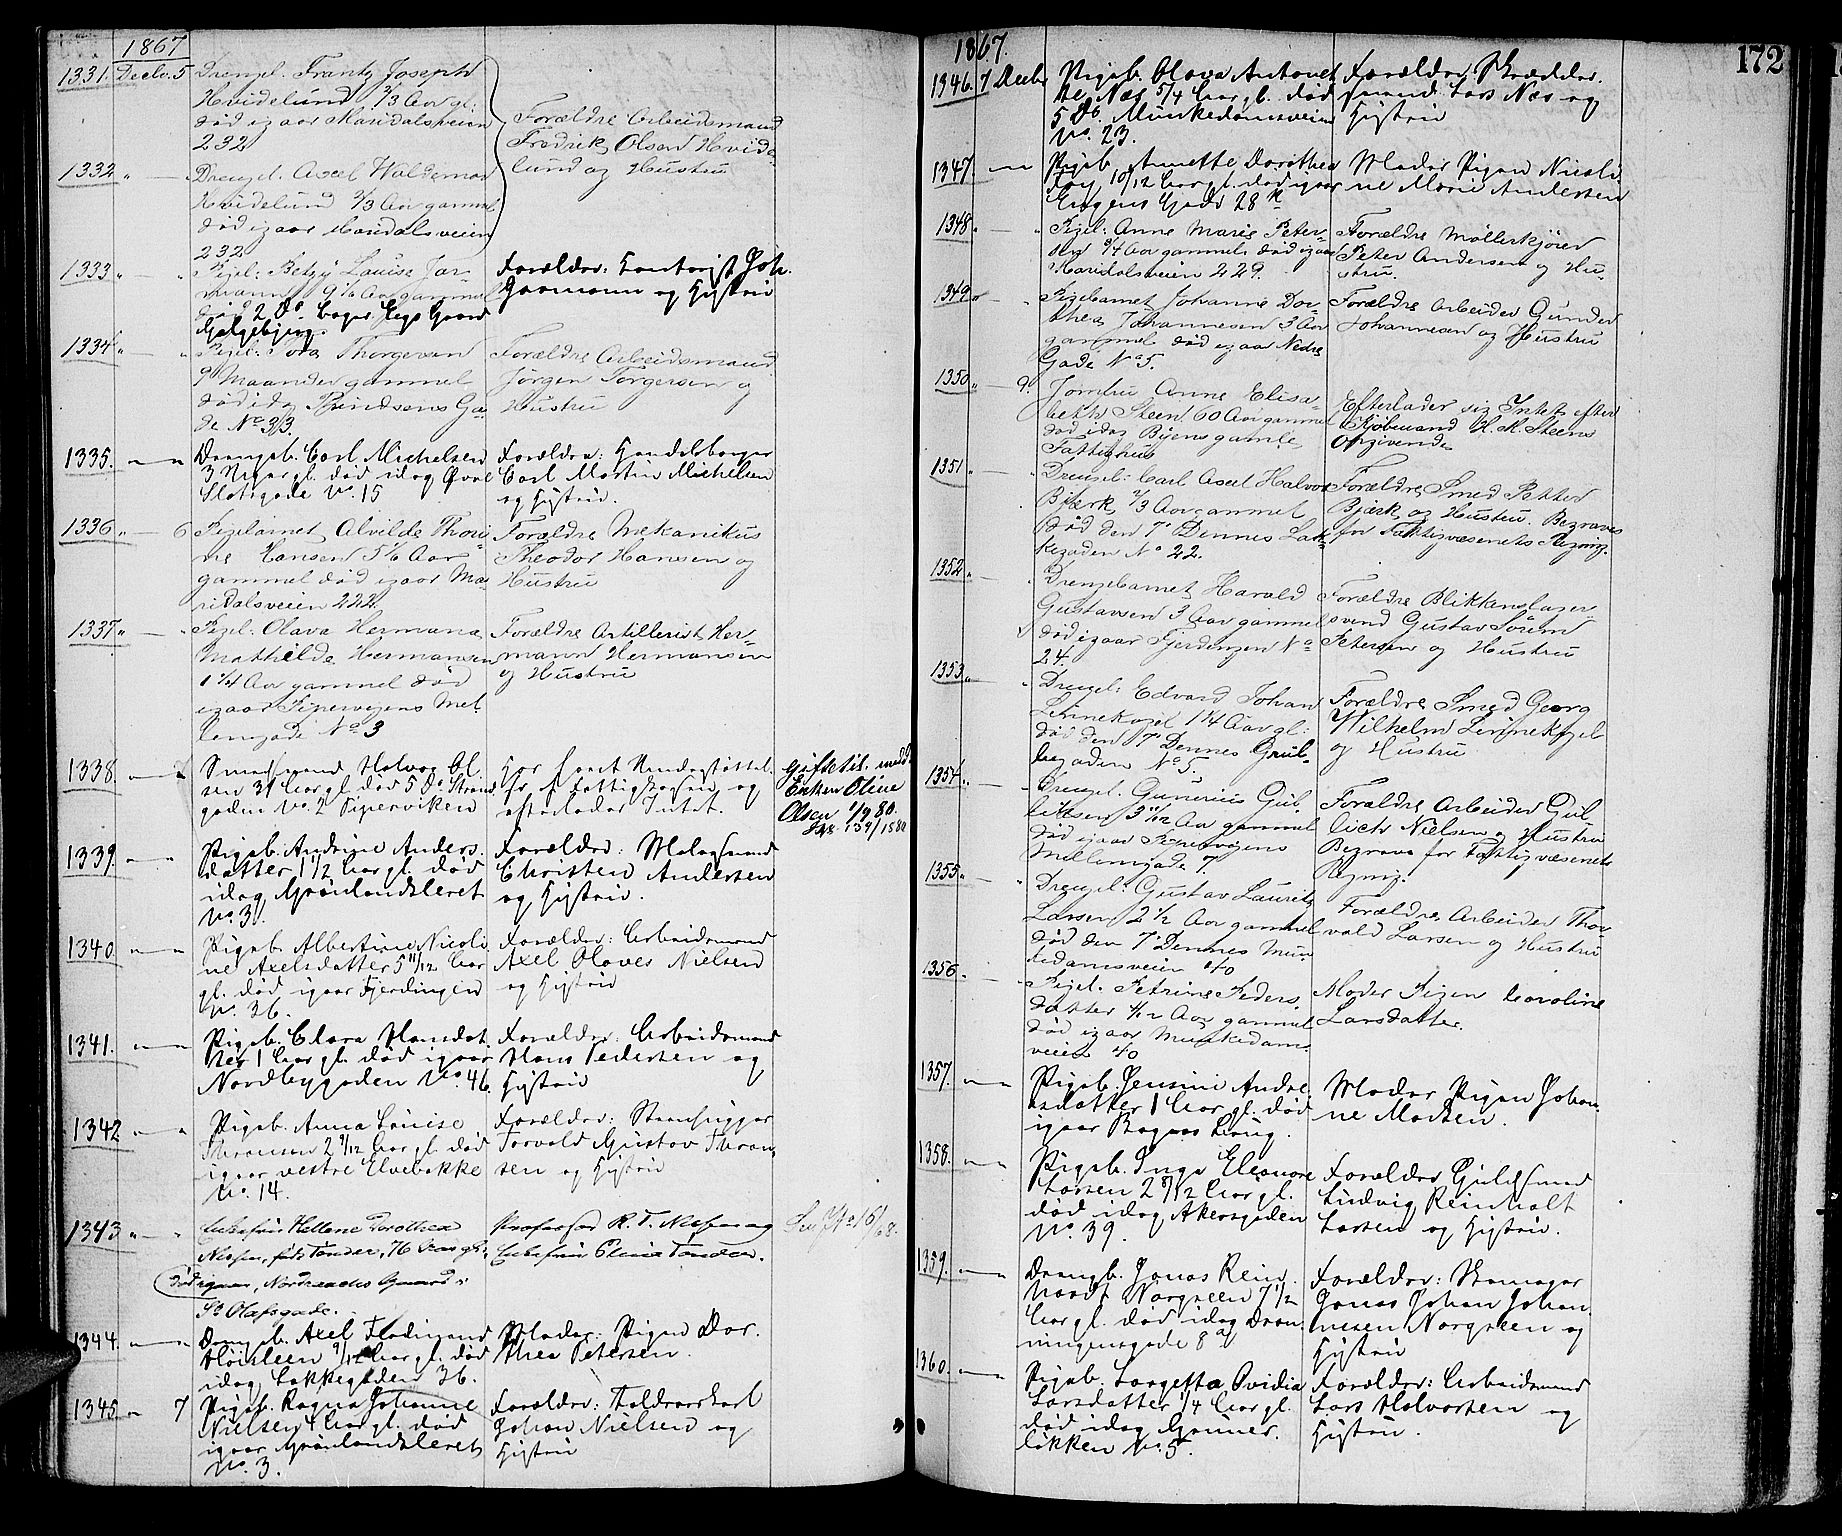 1867
1331. Decbr. 5 Drengb. Frantz Joseph
Hvidelund, 2/3 Aar gl.
død igaar Maridalsveien
232
Forældre Arbeidsmand
Fredrik Olsen Hvide-
lund og Hustru
1332 " — Drengb. Axel Waldemar
Hvidelund 2/3 Aar gammel
død igaar Maridalsveien
232
1333 " — " Pigeb: Betzy Louise Gar-
mann Aar gammel
død 2 ds.
Galgebjerg.
Forældre: Contorist Joh.
Garmann og Hustru
1334 " — " Pigeb: Tora Thorgersen
9 Maaneder gammel
død idag Ga-
de No 33.
Forældre Arbeidsmand
Jørgen Torgersen og
Hustru
1335. — " Drengb. Carl Michelsen
gl. død idag Øvre
Slotsgade No. 15
Forældre: Handelsborger
Carl Martin Michelsen
og Hustru.
1336 " — 6 Pigebarnet Alvilde Thori-
ne Hansen 5 1/6 Aar
gammel død igaar Ma-
ridalsveien 222.
Forældre Mekanikus
Theodor Hansen og
Hustru
1337 " — " Pigeb. Olava Hermana
Mathilde Hermansen
1 1/4 Aar gammel død
igaar Pipervigens Mel-
lemgade No 3
Forældre Artillerist Her-
mann Hermansen
og Hustru
1338. — Halvor Ol-
sen 31 Aar gl. død 5 ds. Strand-
gaden No. 2 Piperviken
Har havt Understøttel-
se af Fattigkassen og
efterlader Intet.
Gift
Enken Oline
Olsen 1/9 80.
1339. — " Pigeb. Andrine Anders-
datter 1 1/2 Aar gl. død
idag Grønlandsleret
No. 31.
Forældre:
Christen Andersen
og Hustru.
1340. — " Pigeb. Albertine Nicoli-
ne Axelsdatter 5 11/12 Aar
gl. død igaar Fjerdingen
No. 36.
Forældre: Arbeidsmand
Axel Olaves Nielsen
og Hustru
1341. — " Pigeb. Clara Hansdat-
ter 1 Aar gl. død igaar
Nordbygaden No. 46.
Forældre: Arbeidsmand
Hans Pedersen og
Hustru
1342 — " Pigeb. Anna Louise
Thransen 2 Aar gl. død
igaar vestre Elvebakke
No. 14.
Forældre: Stenhugger
Torvald Gustav Thran-
sen og Hustru
1343 " — " Enkefru Hellene Dorothea
Nissen, født Tønder, 76 Aar gl.,
død igaar, Gaard i
St. Olafsgade.
Professor R. T. Nissen og
Enkefru Tønder.
Se No 16/68.
1344. — " Drengb. Axel Ferdinand
9/12 Aar gl. død
idag Lakkegaden 36.
Moder: Pigen Dor-
thea Petersen.
1345 — 7 Pigeb. Ragna Johanne
Nielsen Aar gl. død
igaar Grønlandsleret
No. 3.
Forældre:
Johan Nielsen og
Hustru
172
1867.
1346. 7 Decbr Pigeb. Olava Antonet-
te Næs 5/4 Aar gl. død
5 ds. Munkedamsveien
No. 23.
Forældre: Skrædder-
svend Lars Næs og
Hustru
1347. — " Pigeb. Annette Dorothea
Foy 10/12 Aar gl. død igaar
Eugens Gade 28
Moder Pigen Nicoli-
ne Marie Andersen
1348 " — " Pigeb: Anne Marie Peter-
sen Aar gammel død igaar
Maridalsveien 229.
Forældre Møllerkjører
Peter Andersen og Hu-
stru.
1349 " — " Pigebarnet Johanne Dor-
thea Johannesen 3 Aar
gammel død igaar Nedre
Gade No 5.
Forældre Arbeider Gunder
Johannesen og Hustru
1350 " — 9. Jomfru Anne Elisa-
beth Steen 60 Aar gammel
død idag Byens gamle
Fattighus
Efterlader sig Intet efter
Kjøbmand H. M. Steens
Opgivende
1351 " — Drengeb: Carl Axel Halvor
Bjerk 1/3 Aar gammel
død den 7' Dennes Lak-
kegaden No 22.
Forældre Smed Petter
Bjerk og Hustru. Begraves
for Fattigvæsenets Regning.
1352 " — " Drengebarnet Harald
Gustavsen 3 Aar gammel
død igaar Fjerdingen No
24.
Forældre Blikkenslager-
svend Gustav Sørum
Petersen og Hustru
1353 " — " Drengeb: Edvard Johan
Linnekogel 1 1/4 Aar gl:
død den 7' Dennes Grub-
begaden No 5.
Forældre Smed Georg
Wilhelm Linnekogel
og Hustru
1354 " — " Drengeb. Gunerius Gul-
liksen 3 11/12 Aar gammel
død igaar Pipervigens
Mellemgade 7.
Forældre Arbeider Gul-
lich Nielsen og Hustru
Begraves for Fattigvæsenets
Regnig.
1355 " — " Drengeb: Gustav Laurits
Larsen 2 1/2 Aar gammel
død den 7' Dennes Mun-
kedamsveien 40
Forældre Arbeider Thor-
vald Larsen og Hustru
1356 — " Pigeb. Petrine Peders-
datter Aar gammel
død igaar Munkedams-
veien 40
Moder Pigen Caroline
Larsdatter.
1357. — " Pigeb. Jensine Andre-
asdatter 1 Aar gl. død
igaar Bagaas Løng.
Moder Pigen Johan-
ne Madsen.
1358. — " Pigeb. Inga Eleonore
Larsen 2 8/12 Aar gl.
død idag Akersgaden
No. 39.
Forældre Guldsmed
Ludvig Reinholt
Larsen og Hustru.
1359. — " Drengb. Jonas Rein-
hardt Norgreen 7 1/2
Aar gl. død idag Dron-
ningensgade 8 a
Forældre: Skomager
Jonas Johan Johan-
nesen Norgreen og
Hustru
1360. — " Pigeb. Lorgetta Ovidia
Larsdatter 1/4 Aar gl.
død idag Grüner-
løkken No. 5.
Forældre: Arbeidsmand
Lars Halvorsen og
Hustru.